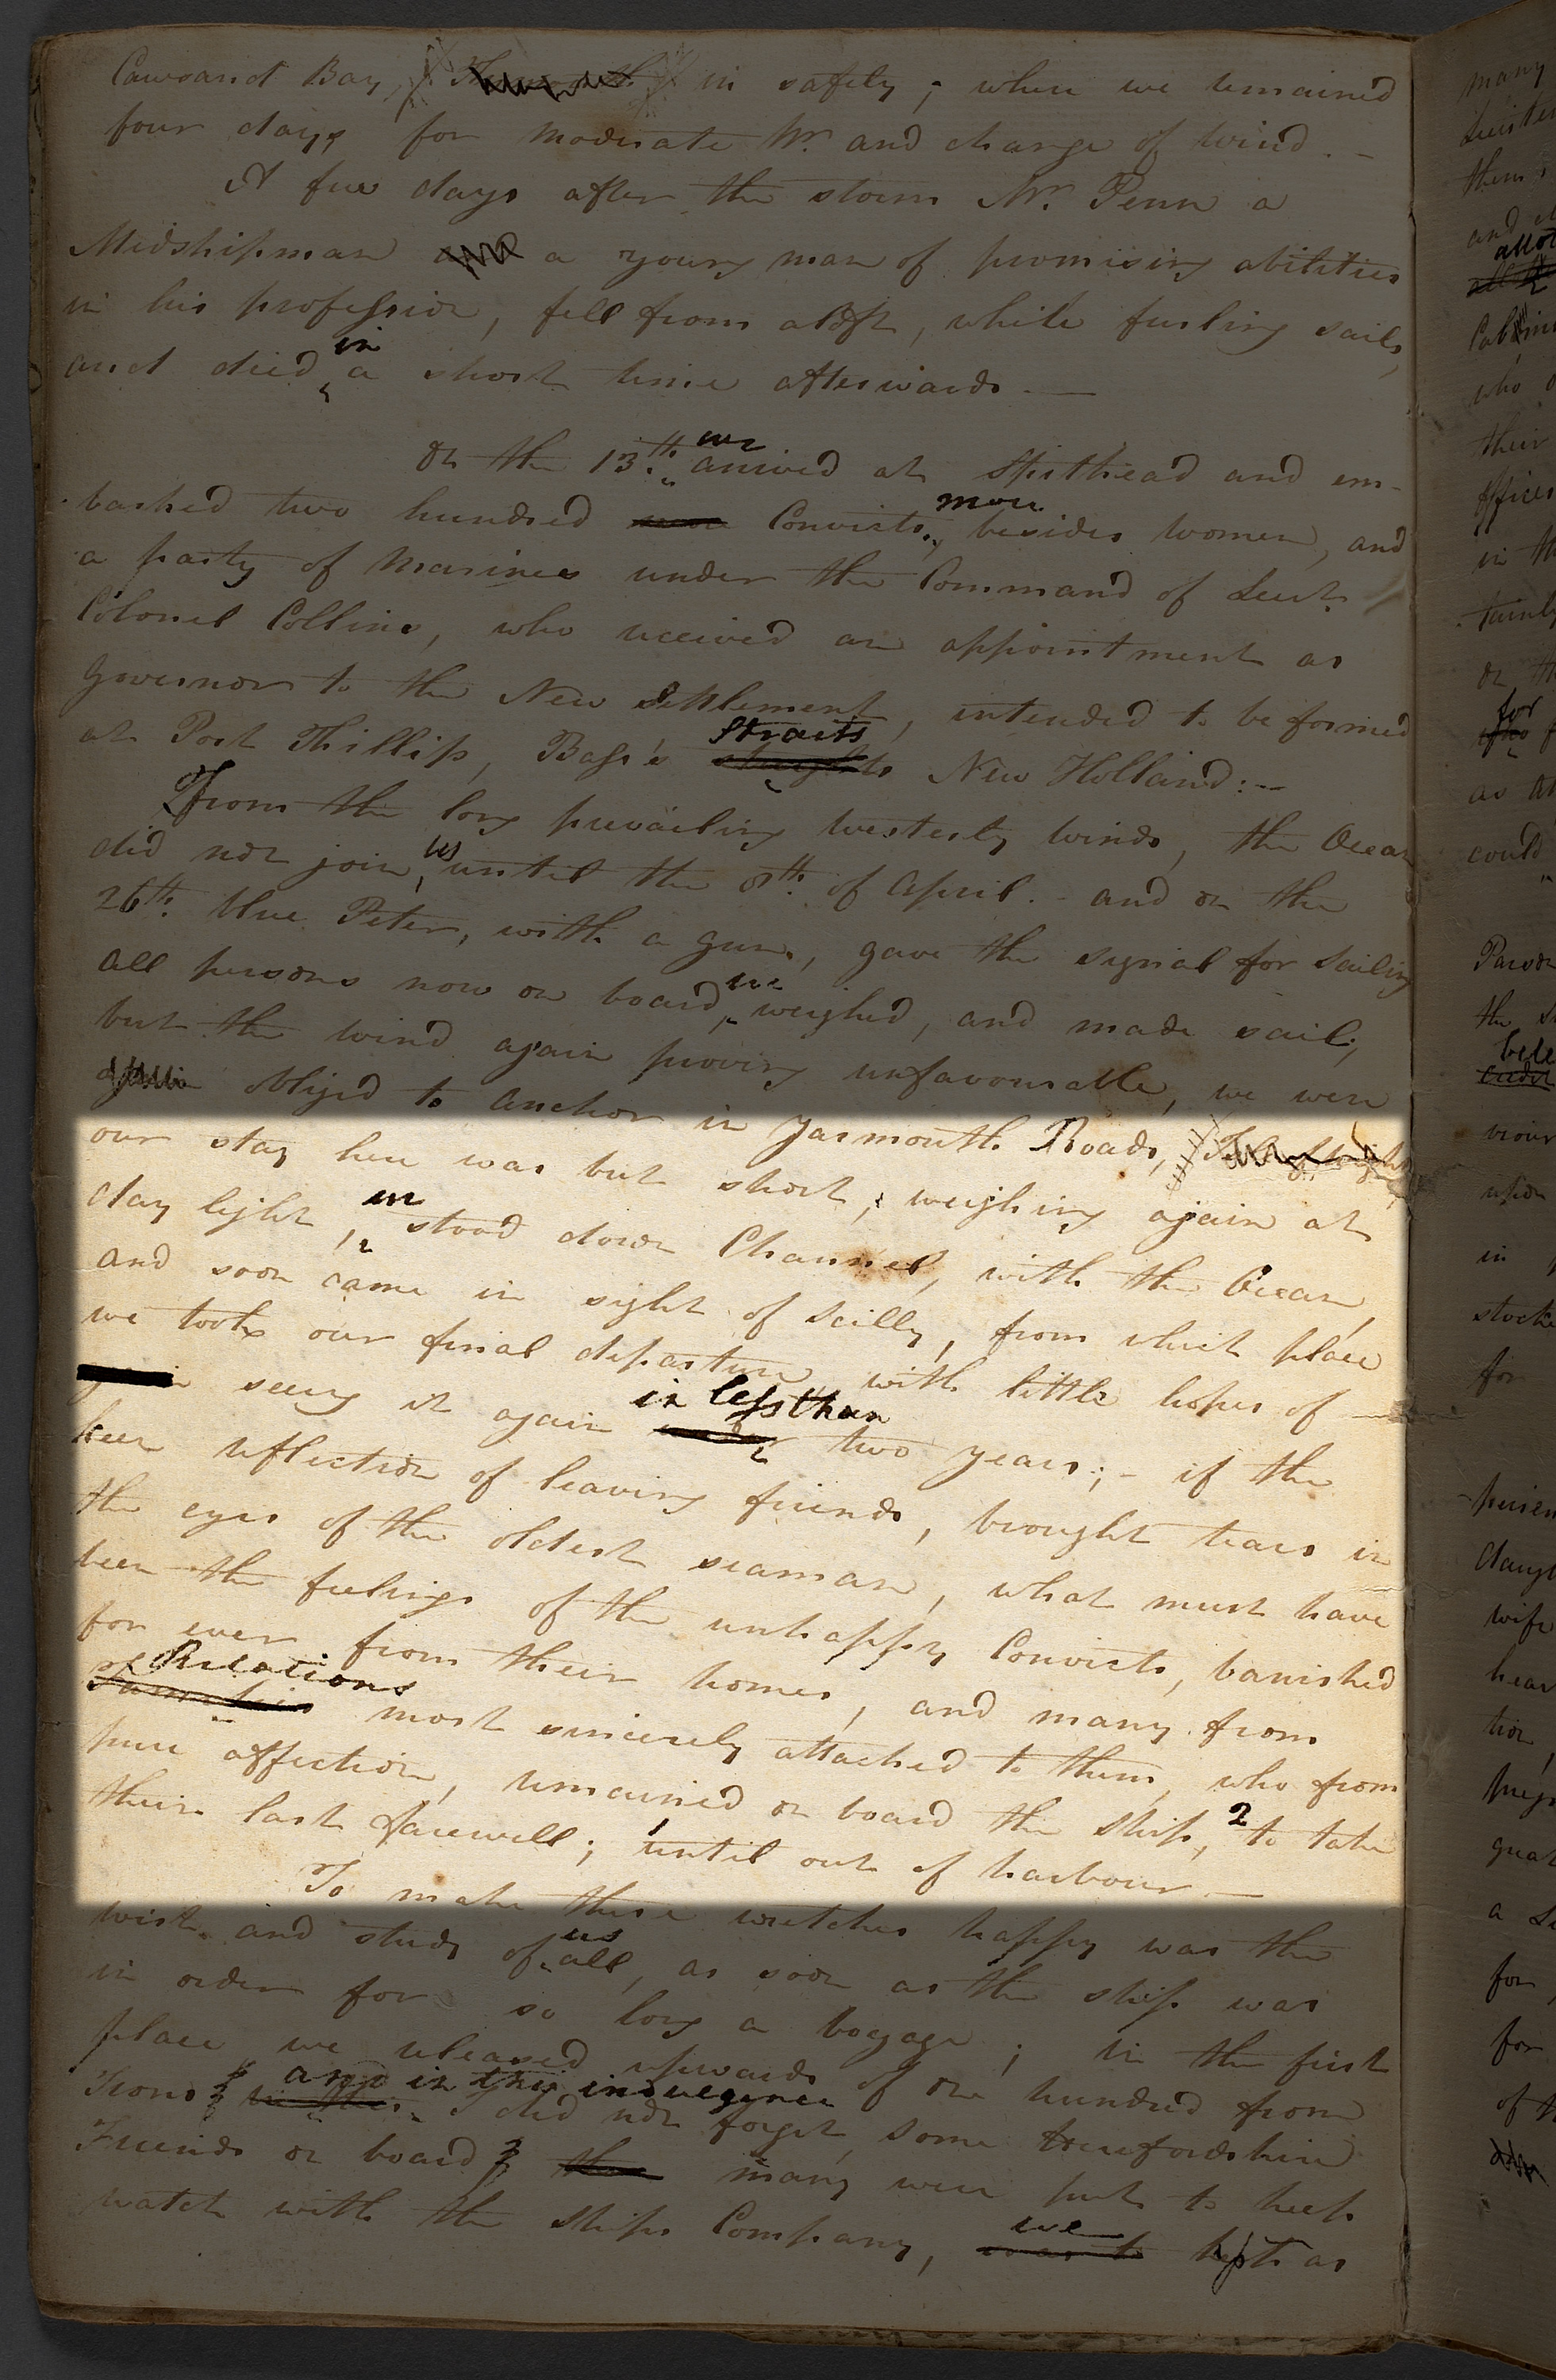 Cawsand Bay, in safety; where we remained
four days for moderate Wr. and change of wind. –
A few days after the storm Mr. Penn a
Midshipman and a young man of promising abilities
in his profession, fell from aloft, while furling sails,
and died in a short time afterwards. —
On the 13th. we arrived at Spithead and em-
barked two hundred more Convicts, more besides women, and
a party of Marines under the Command of Lieut.
Colonel Collins, who received an appointment as
Governor to the New Settlement, intended to be formed
at Port Phillip, Bass's straights Straits New Holland: –
From the long prevailing westerly winds, the Ocean
did not join us until the 8th. of April. – and on the
26th. blue Peter, with a gun, gave the signal for sailing
all persons now on board, we weighed, and made sail;
but the wind again proving unfavourable, we were
again obliged to anchor in Yarmouth Roads,
our stay here was but short; weighing again at
day light, we stood down Channel, with the Ocean,
and soon came in sight of Scilly, from which place
we took our final departure with little hopes of
seeing it again under in less than two years; – if the
keen reflection of leaving friends, brought tears in
the eyes of the oldest seaman, what must have
been the feelings of the unhappy Convicts, banished
for ever from their homes, and many from
Families Relations most sincerely attached to them, who from
pure affection, remained on board the Ship, 2 to take
their last farewell; 1 until out of harbour —
To make these wretches happy was the
wish and study of us all, as soon as the ship was
in order for so long a voyage; in the first
place we released upwards of one hundred from
Irons; in this and in this indulgence I did not forget some Herefordshire
Friends on board; many were put to keep
watch with the Ships Company, was to we kept as
many
them,
and
allot
Cab
who
their
office
in th
tainly
on th
for
as
could
the
bele
credit
viour
upon
in
stock
for
wife
hear
tion,
a
for
for
of